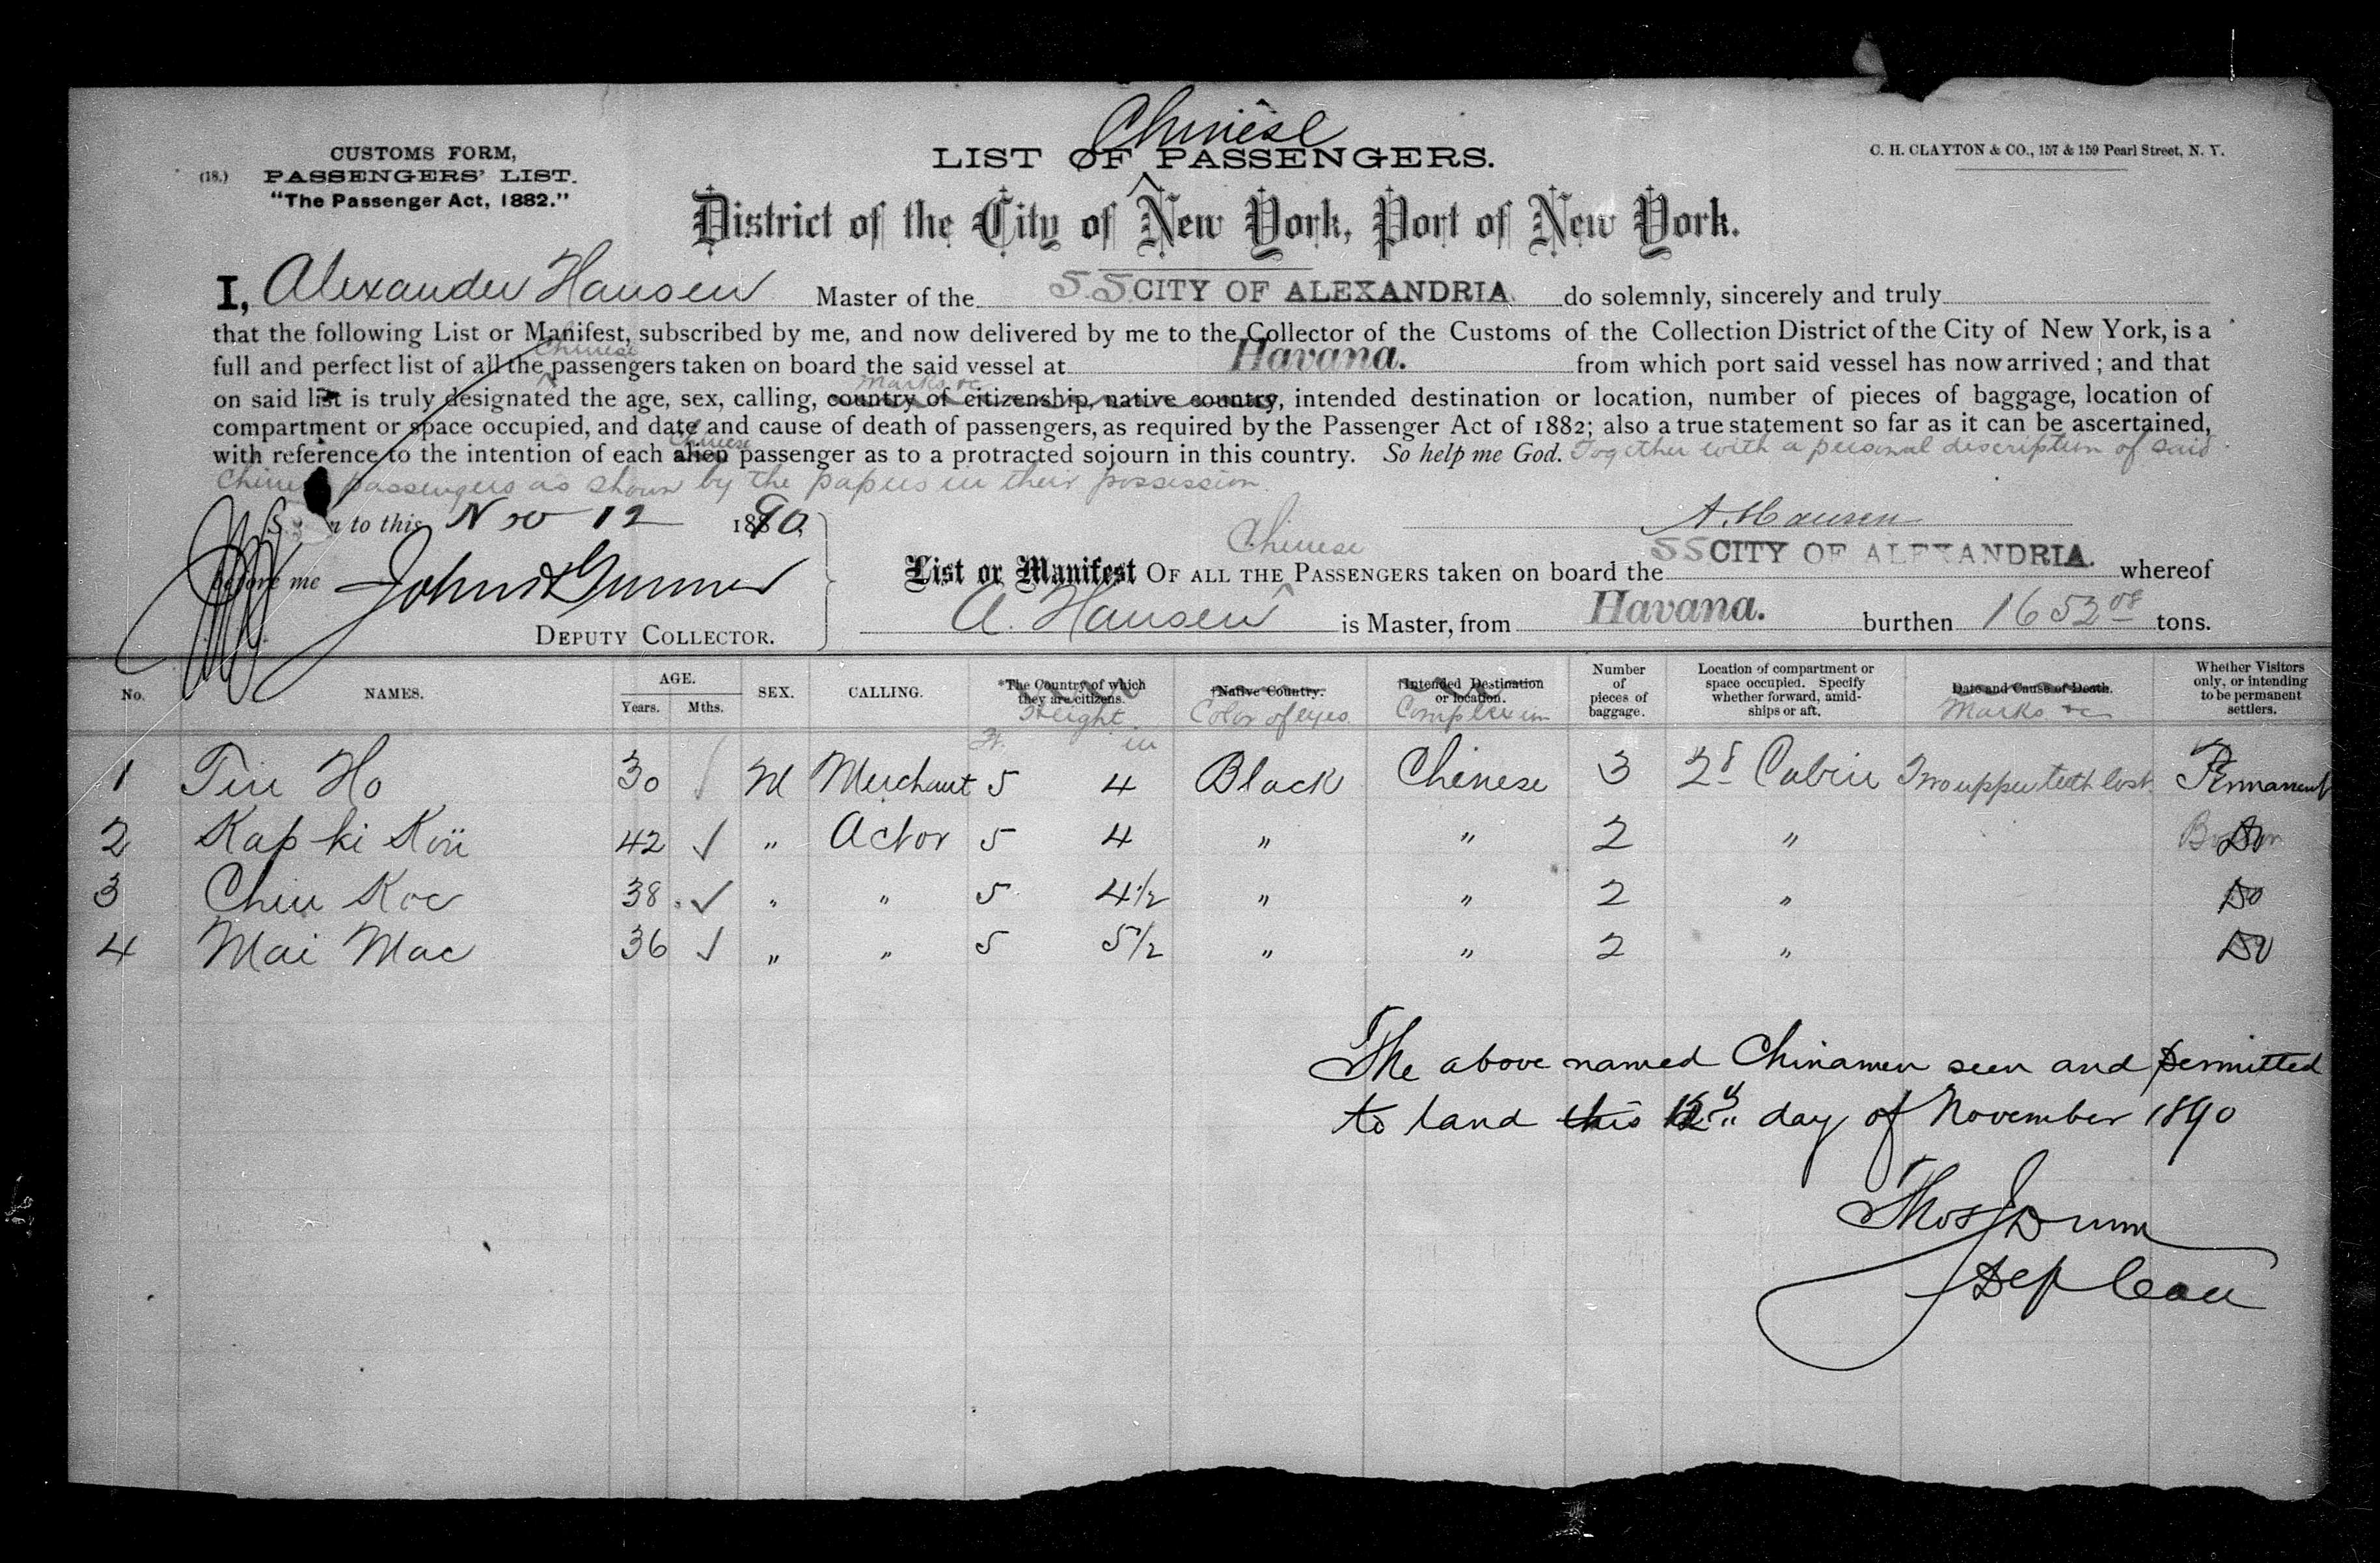 Chinese
CUSTOMS FORM,
(18.) PASSENGERS' LIST.
"The Passenger Act, 1882."
LIST OF PASSENGERS.
C. H. CLAYTON & CO., 157 & 159 Pearl Street, N. Y.
District of the City of New York, Port of New York.
I, Alexander Hansen Master of the S.S. CITY OF ALEXANDRIA do solemnly, sincerely and truly
that the following List or Manifest, subscribed by me, and now delivered by me to the Collector of the Customs of the Collection District of the City of New York, is a
full and perfect list of all the Chinese passengers taken on board the said vessel at Havana. from which port said vessel has now arrived; and that
Marks &c
on said list is truly designated the age, sex, calling, country of citizenship, native country, intended destination or location, number of pieces of baggage, location of
compartment or space occupied, and date and cause of death of passengers, as required by the Passenger Act of 1882; also a true statement so far as it can be ascertained,
Chinese
with reference to the intention of each alien passenger as to a protracted sojourn in this country. So help me God. Together with a personal description of said
Chinese passengers as shown by the papers in their possession.
to this Nov 12 1890
A. Hansen
before me
DEPUTY COLLECTOR.
Chinese
List or Manifest OF ALL THE PASSENGERS taken on board the SS CITY OF ALEXANDRIA. whereof
A. Hansen is Master, from Havana. burthen 1652 08 tons.
No. NAMES. AGE. Years. Mths. SEX. CALLING. *The Country of which they are citizens. Height †Native Country. Color of eyes †Intended Destination or location. Complexion Number of pieces of baggage. Location of compartment or space occupied. Specify whether forward, amidships or aft. Date and Cause of Death. Marks &c Whether Visitors only, or intending to be permanent settlers.
Ft. in
1 Tin Ho 30 M Merchant 5 4 Black Chinese 3 2d Cabin Two upper teeth lost. Permanent
2 Kap ki Koü 42 ✓ " Actor 5 4 " " 2 " Do
3 Chiu Koc 38 ✓ " " 5 4½ " " 2 " Do
4 Mai Mac 36 ✓ " " 5 5½ " " 2 " Do
The above named Chinamen seen and permitted
to land this 12th day of November 1890
Thos J Dunn
Dep